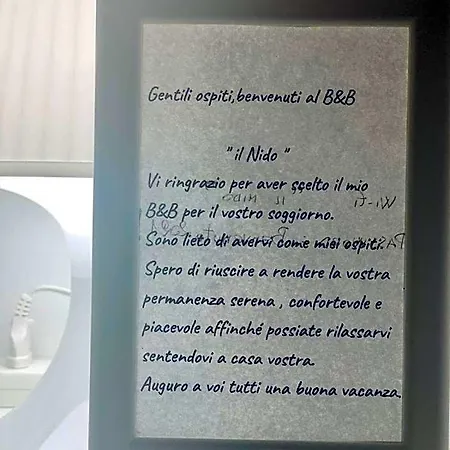 Gentili ospiti,benvenuti al B&B
" il Nido "
Vi ringrazio per aver scelto il mio
B&B per il vostro soggiorno.
Sono lieto di avervi come miei ospiti.
Spero di riuscire a rendere la vostra
permanenza serena , confortevole e
piacevole affinché possiate rilassarvi
sentendovi a casa vostra.
Auguro a voi tutti una buona vacanza.
Wi-Fi